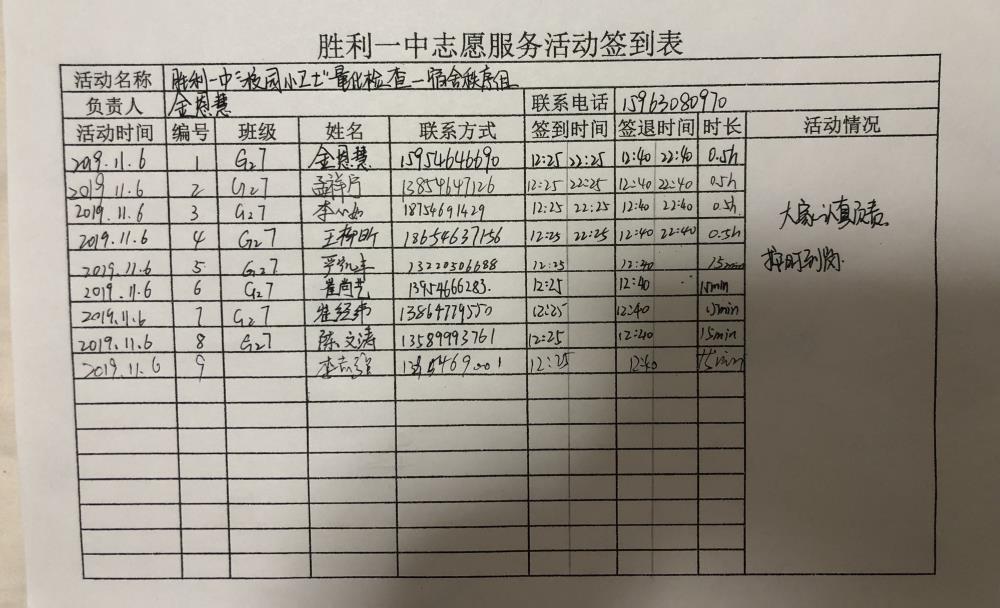 胜利一中志愿服务活动签到表
活动名称 胜利一中"校园小卫士"量化检查—宿舍秩序组
负责人 金恩慧 联系电话 15963080970
活动时间 编号 班级 姓名 联系方式 签到时间 签退时间 时长 活动情况
2019.11.6 1 G27 金恩慧 15954646690 12:25 22:25 12:40 22:40 0.5h
2019.11.6 2 G27 13854647126 12:25 22:25 12:40 22:40 0.5h
2019.11.6 3 G27 18754691429 12:25 22:25 12:40 22:40 0.5h
2019.11.6 4 G27 王柳昕 18654637156 12:25 22:25 12:40 22:40 0.5h
大家认真负责
按时到岗.
2019.11.6 5 G27 13220506688 12:25 12:40 15min
2019.11.6 6 G27 崔尚艺 13954666283. 12:25 12:40 15min
2019.11.6 7 G27 崔经纬 13864779550 12:25 12:40 15min
2019.11.6 8 G27 陈文涛 13589993761 12:25 12:40 15min
2019.11.6 9 李志强 12:25 12:40 15min